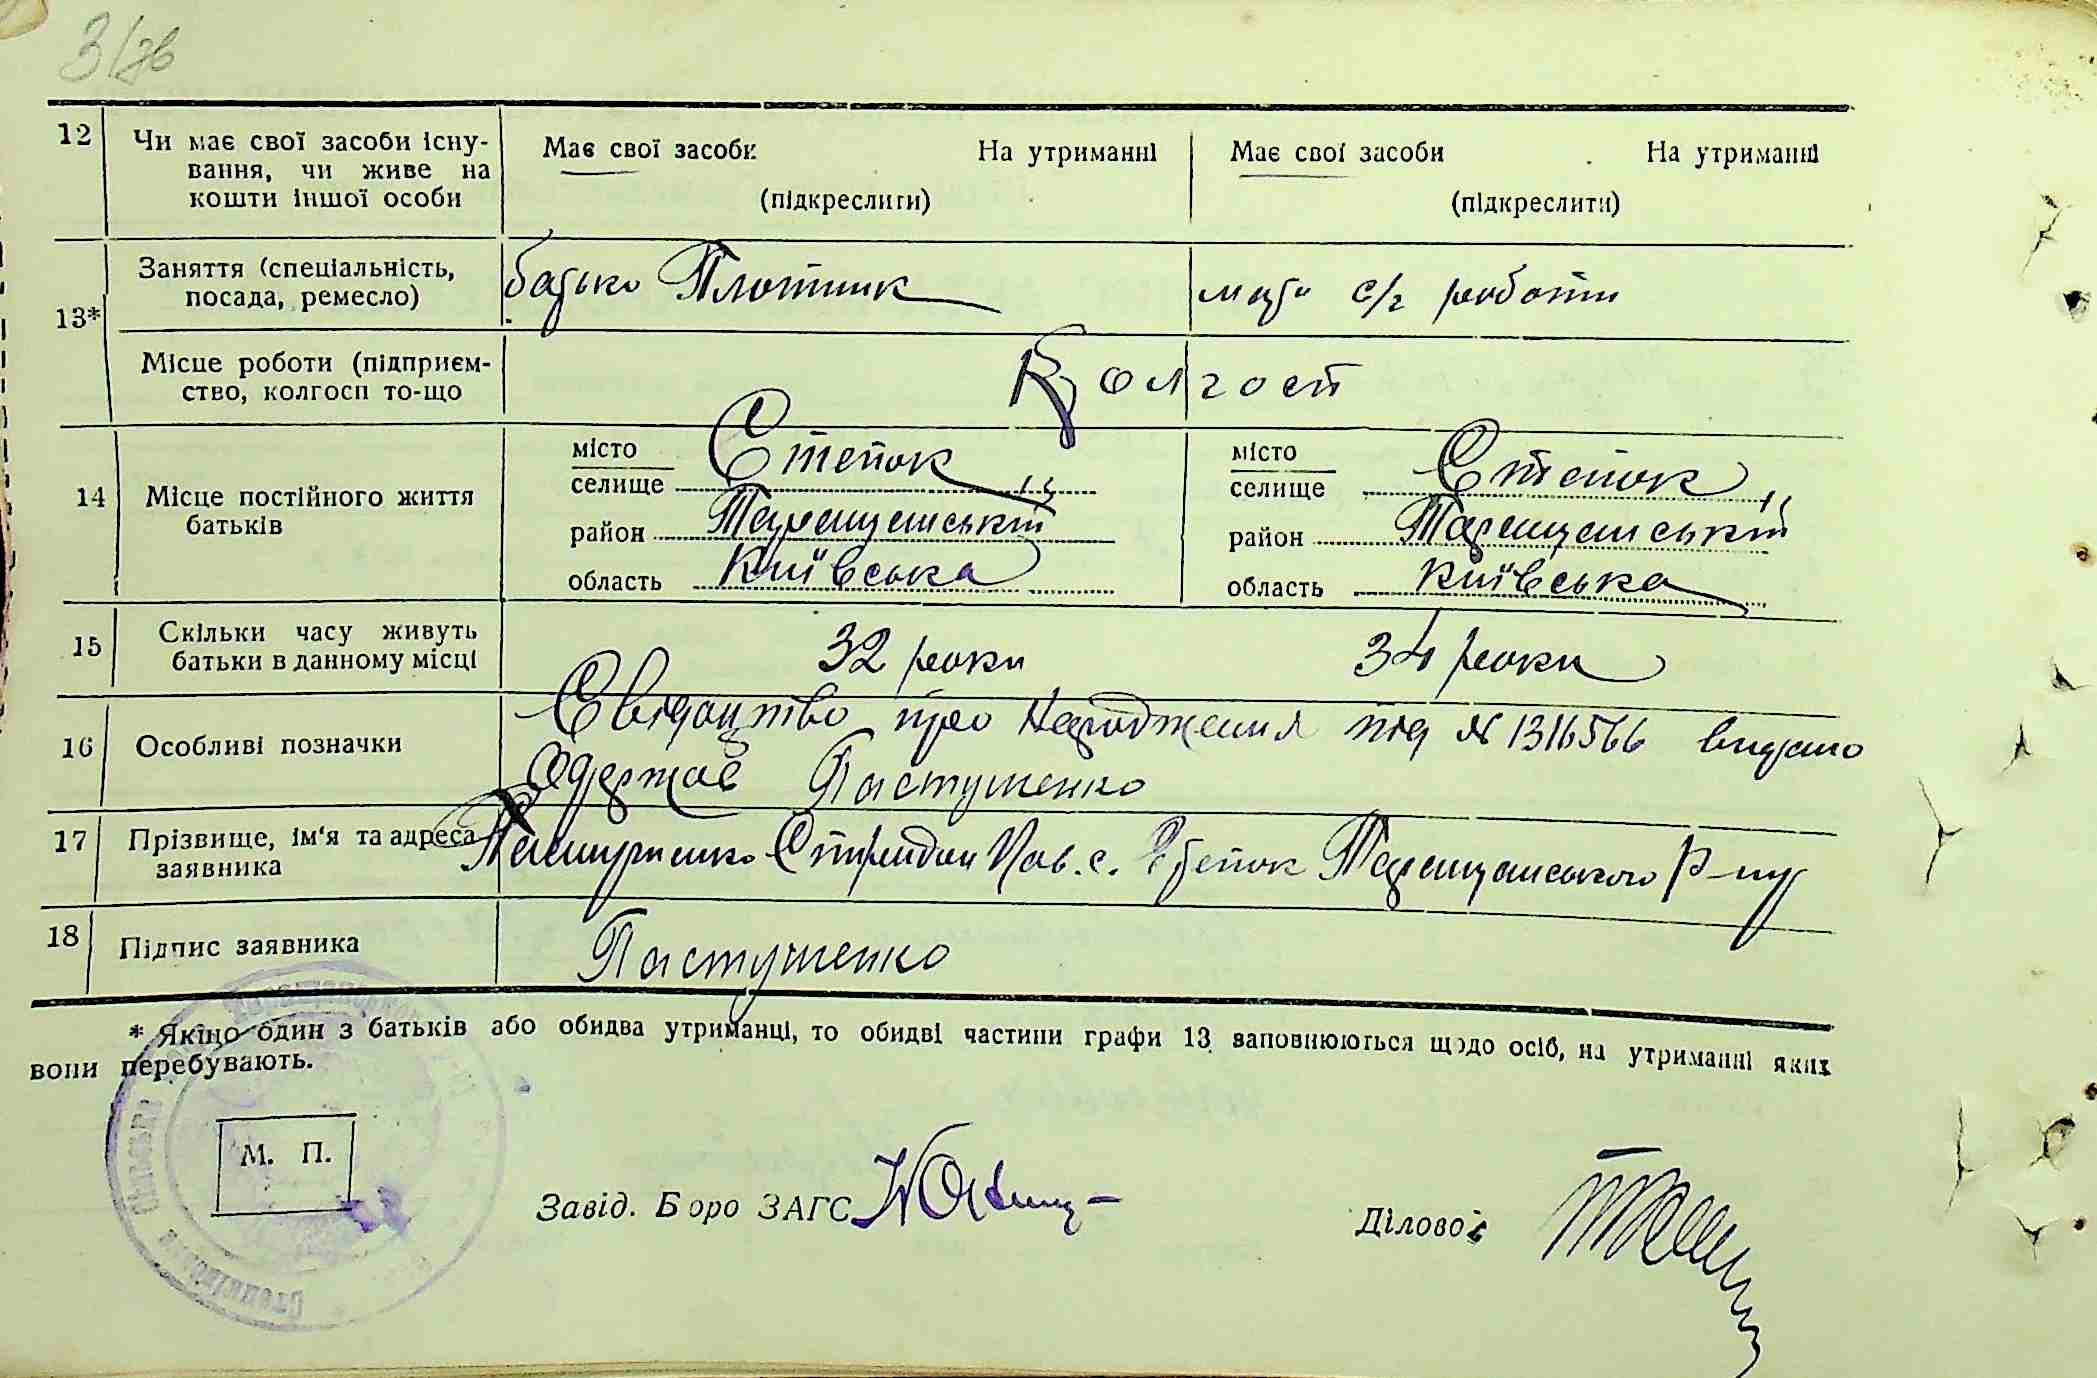 3/зв
12 Чи має свої засоби існу-
вання, чи живе на
кошти іншої особи
Має свої засоби На утриманні
(підкреслити)
Має свої засоби На утриманні
(підкреслити)
13* Заняття (спеціальність,
посада, ремесло)
батько Плотник
мати с/г роботи
Місце роботи (підприєм-
ство, колгосп то-що
Колгосп
14 Місце постійного життя
батьків
місто
селище Степок
район Таращанський
область Київська
місто
селище Степок
район Таращанський
область Київська
15 Скільки часу живуть
батьки в данному місці
32 роки 34 роки
16 Особливі позначки
Свідоцтво про народження під № 1316566 видано
Одержав Пастушенко
17 Прізвище, ім'я та адреса
заявника
Пастушенко Спиридон Пав. с. Степок Таращанського р-ну
18 Підпис заявника
Пастушенко
* Якщо один з батьків або обидва утриманці, то обидві частини графи 13 заповнюються щодо осіб, на утриманні яких
вони перебувають.
М. П.
Завід. Боро ЗАГС
Діловод